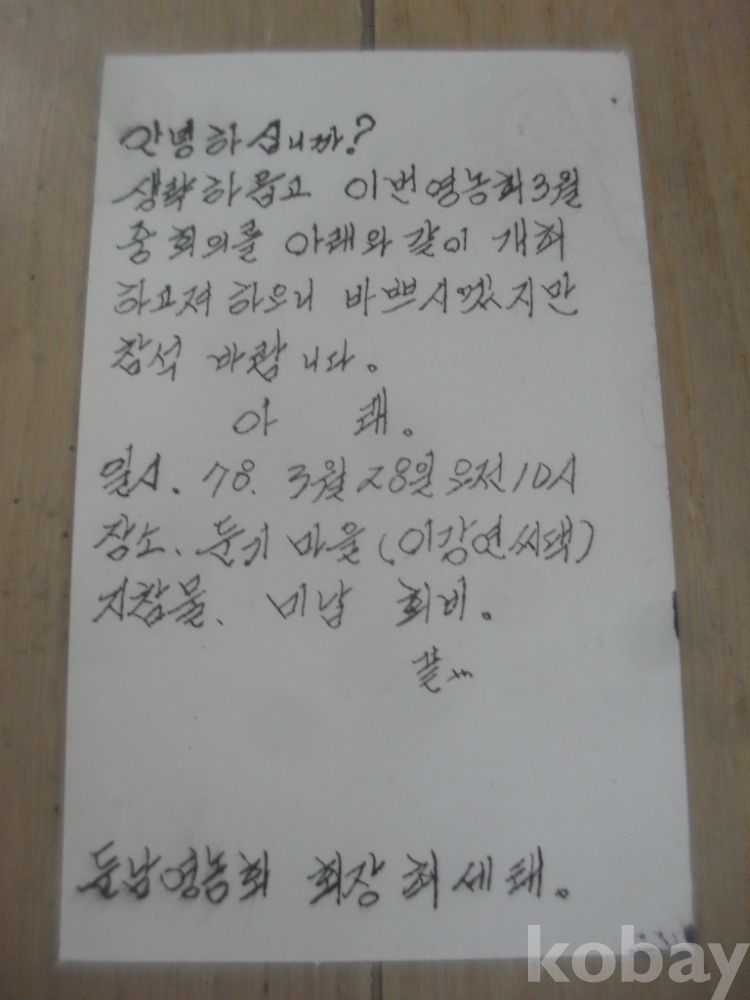 안녕하십니까?
생략하옵고 이번영농회3월
중 회의를 아래와 같이 개최
하고저 하오니 바쁘시겠지만
참석 바랍니다.
아 래.
일시. 78. 3월 28일 오전 10시
장소. 둔기 마을 (이강연씨댁)
지참물. 미납 회비.
끝
둔남영농회 회장 최세태.
kobay